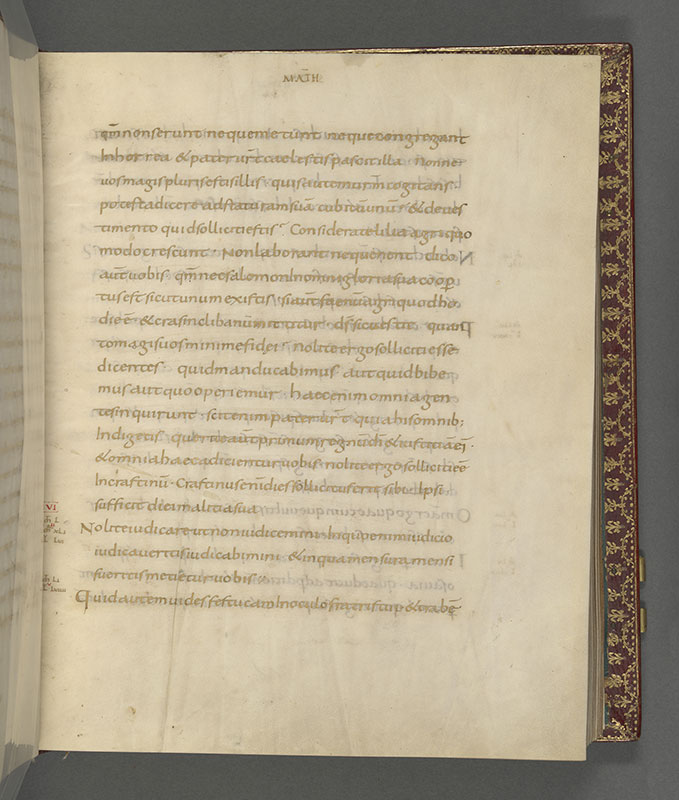 MATH
qm̄ non serunt neque metunt neque congregant
In horrea & pater ur̄ caelestis pascit illa Nonne
uos magis pluris estis illis quis autem ur̄m cogitans
potest adicere ad staturam suā cubitū unū & de ues
timento quid solliciti estis. Considerate lilia agri quo
modo crescunt. Non laborant neque nent dico
aut uobis qm̄ nec salomon In omni gloria sua coop
tus est sicut unum ex istis si aut faenū agri quod ho
die ē & cras In clibanum mittitur dṡ sic uestit quan
to magis uos minime fidei nolite ergo solliciti esse
dicentes quid manducabimus aut quid bibe
mus aut quo operiemur haec enim omnia gen
tes inquirunt scit enim pater ur̄ quia his omnib;
Indigetis querite aut primum regnū dī & iustitiā eī.
& omnia haec adicientur uobis nolite ergo solliciti eē
In crastinū. Crastinus enī dies sollicitus erit sibi Ipsi
sufficit diei malitia sua
VI
Nolite iudicare ut non iudicemini In quo enim iudicio
iudicaueritis iudicabimini & in qua mensura mensi
fueritis metietur uobis
Quid autem uides festucam In oculo fratris tui & trabē